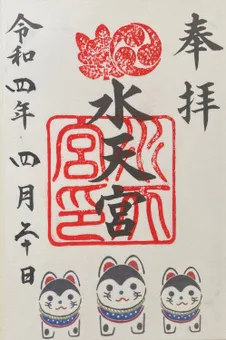 奉拝
水天宮
水天宮印
令和四年四月六日